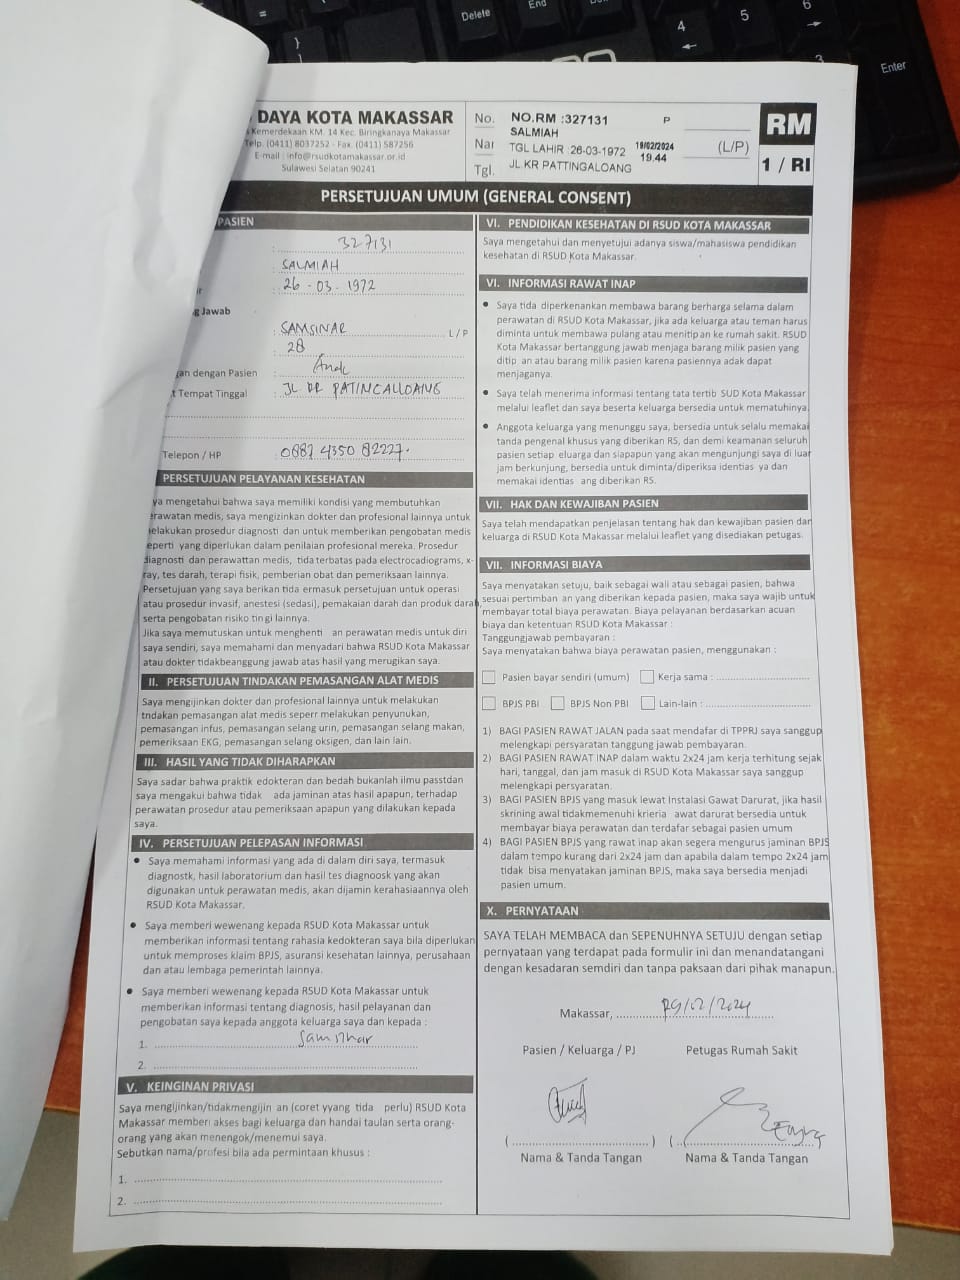 DAYA KOTA MAKASSAR
Kemerdekaan KM. 14 Kec. Biringkanaya Makassar
Telp. (0411) 8037252 - Fax. (0411) 587256
E-mail : info@rsudkotamakassar.or.id
Sulawesi Selatan 90241
No.
Nar
Tgl.
NO.RM :327131 P
SALMIAH
TGL LAHIR :26-03-1972
JL.KR PATTINGALOANG
19/02/2024
19.44
(L/P)
RM
1 / RI
PERSETUJUAN UMUM (GENERAL CONSENT)
PASIEN
: 327131
: SALMIAH
: 26 - 03 - 1972
g Jawab
: SAMSINAR L / P
: 28
gan dengan Pasien : Anak
t Tempat Tinggal : JL KR PATINGALLOANG
Telepon / HP : 0887 4350 82227.
PERSETUJUAN PELAYANAN KESEHATAN
ya mengetahui bahwa saya memiliki kondisi yang membutuhkan
erawatan medis, saya mengizinkan dokter dan profesional lainnya untuk
elakukan prosedur diagnosti dan untuk memberikan pengobatan medis
eperti yang diperlukan dalam penilaian profesional mereka. Prosedur
diagnosti dan perawattan medis, tida terbatas pada electrocadiograms, x-
ray, tes darah, terapi fisik, pemberian obat dan pemeriksaan lainnya.
Persetujuan yang saya berikan tida ermasuk persetujuan untuk operasi
atau prosedur invasif, anestesi (sedasi), pemakaian darah dan produk darah,
serta pengobatan risiko tin gi lainnya.
Jika saya memutuskan untuk menghenti an perawatan medis untuk diri
saya sendiri, saya memahami dan menyadari bahwa RSUD Kota Makassar
atau dokter tidakbeanggung jawab atas hasil yang merugikan saya.
II. PERSETUJUAN TINDAKAN PEMASANGAN ALAT MEDIS
Saya mengijinkan dokter dan profesional lainnya untuk melakukan
tndakan pemasangan alat medis seperr melakukan penyunukan,
pemasangan infus, pemasangan selang urin, pemasangan selang makan,
pemeriksaan EKG, pemasangan selang oksigen, dan lain lain.
III. HASIL YANG TIDAK DIHARAPKAN
Saya sadar bahwa praktik edokteran dan bedah bukanlah ilmu passtdan
saya mengakui bahwa tidak ada jaminan atas hasil apapun, terhadap
perawatan prosedur atau pemeriksaan apapun yang dilakukan kepada
saya.
IV. PERSETUJUAN PELEPASAN INFORMASI
• Saya memahami informasi yang ada di dalam diri saya, termasuk
diagnostk, hasil laboratorium dan hasil tes diagnoosk yang akan
digunakan untuk perawatan medis, akan dijamin kerahasiaannya oleh
RSUD Kota Makassar.
• Saya memberi wewenang kepada RSUD Kota Makassar untuk
memberikan informasi tentang rahasia kedokteran saya bila diperlukan
untuk memproses klaim BPJS, asuransi kesehatan lainnya, perusahaan
dan atau lembaga pemerintah lainnya.
• Saya memberi wewenang kepada RSUD Kota Makassar untuk
memberikan informasi tentang diagnosis, hasil pelayanan dan
pengobatan saya kepada anggota keluarga saya dan kepada :
1. Samsinar
2.
V. KEINGINAN PRIVASI
Saya mengijinkan/tidakmengijin an (coret yyang tida perlu) RSUD Kota
Makassar memberi akses bagi keluarga dan handai taulan serta orang-
orang yang akan menengok/menemui saya.
Sebutkan nama/profesi bila ada permintaan khusus :
1.
2.
VI. PENDIDIKAN KESEHATAN DI RSUD KOTA MAKASSAR
Saya mengetahui dan menyetujui adanya siswa/mahasiswa pendidikan
kesehatan di RSUD Kota Makassar.
VI. INFORMASI RAWAT INAP
• Saya tida diperkenankan membawa barang berharga selama dalam
perawatan di RSUD Kota Makassar, jika ada keluarga atau teman harus
diminta untuk membawa pulang atau menitip an ke rumah sakit. RSUD
Kota Makassar bertanggung jawab menjaga barang milik pasien yang
ditip an atau barang milik pasien karena pasiennya adak dapat
menjaganya.
• Saya telah menerima informasi tentang tata tertib SUD Kota Makassar
melalui leaflet dan saya beserta keluarga bersedia untuk mematuhinya.
• Anggota keluarga yang menunggu saya, bersedia untuk selalu memakai
tanda pengenal khusus yang diberikan RS, dan demi keamanan seluruh
pasien setiap eluarga dan siapapun yang akan mengunjungi saya di luar
jam berkunjung, bersedia untuk diminta/diperiksa identias ya dan
memakai identias ang diberikan RS.
VII. HAK DAN KEWAJIBAN PASIEN
Saya telah mendapatkan penjelasan tentang hak dan kewajiban pasien dan
keluarga di RSUD Kota Makassar melalui leaflet yang disediakan petugas.
VII. INFORMASI BIAYA
Saya menyatakan setuju, baik sebagai wali atau sebagai pasien, bahwa
sesuai pertimban an yang diberikan kepada pasien, maka saya wajib untuk
membayar total biaya perawatan. Biaya pelayanan berdasarkan acuan
biaya dan ketentuan RSUD Kota Makassar :
Tanggungjawab pembayaran :
Saya menyatakan bahwa biaya perawatan pasien, menggunakan :
Pasien bayar sendiri (umum) Kerja sama :
BPJS PBI BPJS Non PBI Lain-lain :
1) BAGI PASIEN RAWAT JALAN pada saat mendafar di TPPRJ saya sanggup
melengkapi persyaratan tanggung jawab pembayaran.
2) BAGI PASIEN RAWAT INAP dalam waktu 2x24 jam kerja terhitung sejak
hari, tanggal, dan jam masuk di RSUD Kota Makassar saya sanggup
melengkapi persyaratan.
3) BAGI PASIEN BPJS yang masuk lewat Instalasi Gawat Darurat, jika hasil
skrining awal tidakmemenuhi krieria awat darurat bersedia untuk
membayar biaya perawatan dan terdafar sebagai pasien umum
4) BAGI PASIEN BPJS yang rawat inap akan segera mengurus jaminan BPJS
dalam tempo kurang dari 2x24 jam dan apabila dalam tempo 2x24 jam
tidak bisa menyatakan jaminan BPJS, maka saya bersedia menjadi
pasien umum.
X. PERNYATAAN
SAYA TELAH MEMBACA dan SEPENUHNYA SETUJU dengan setiap
pernyataan yang terdapat pada formulir ini dan menandatangani
dengan kesadaran semdiri dan tanpa paksaan dari pihak manapun.
Makassar, 29/02/2024
Pasien / Keluarga / PJ Petugas Rumah Sakit
Nama & Tanda Tangan Nama & Tanda Tangan
Delete
End
Enter
4
5
6
3